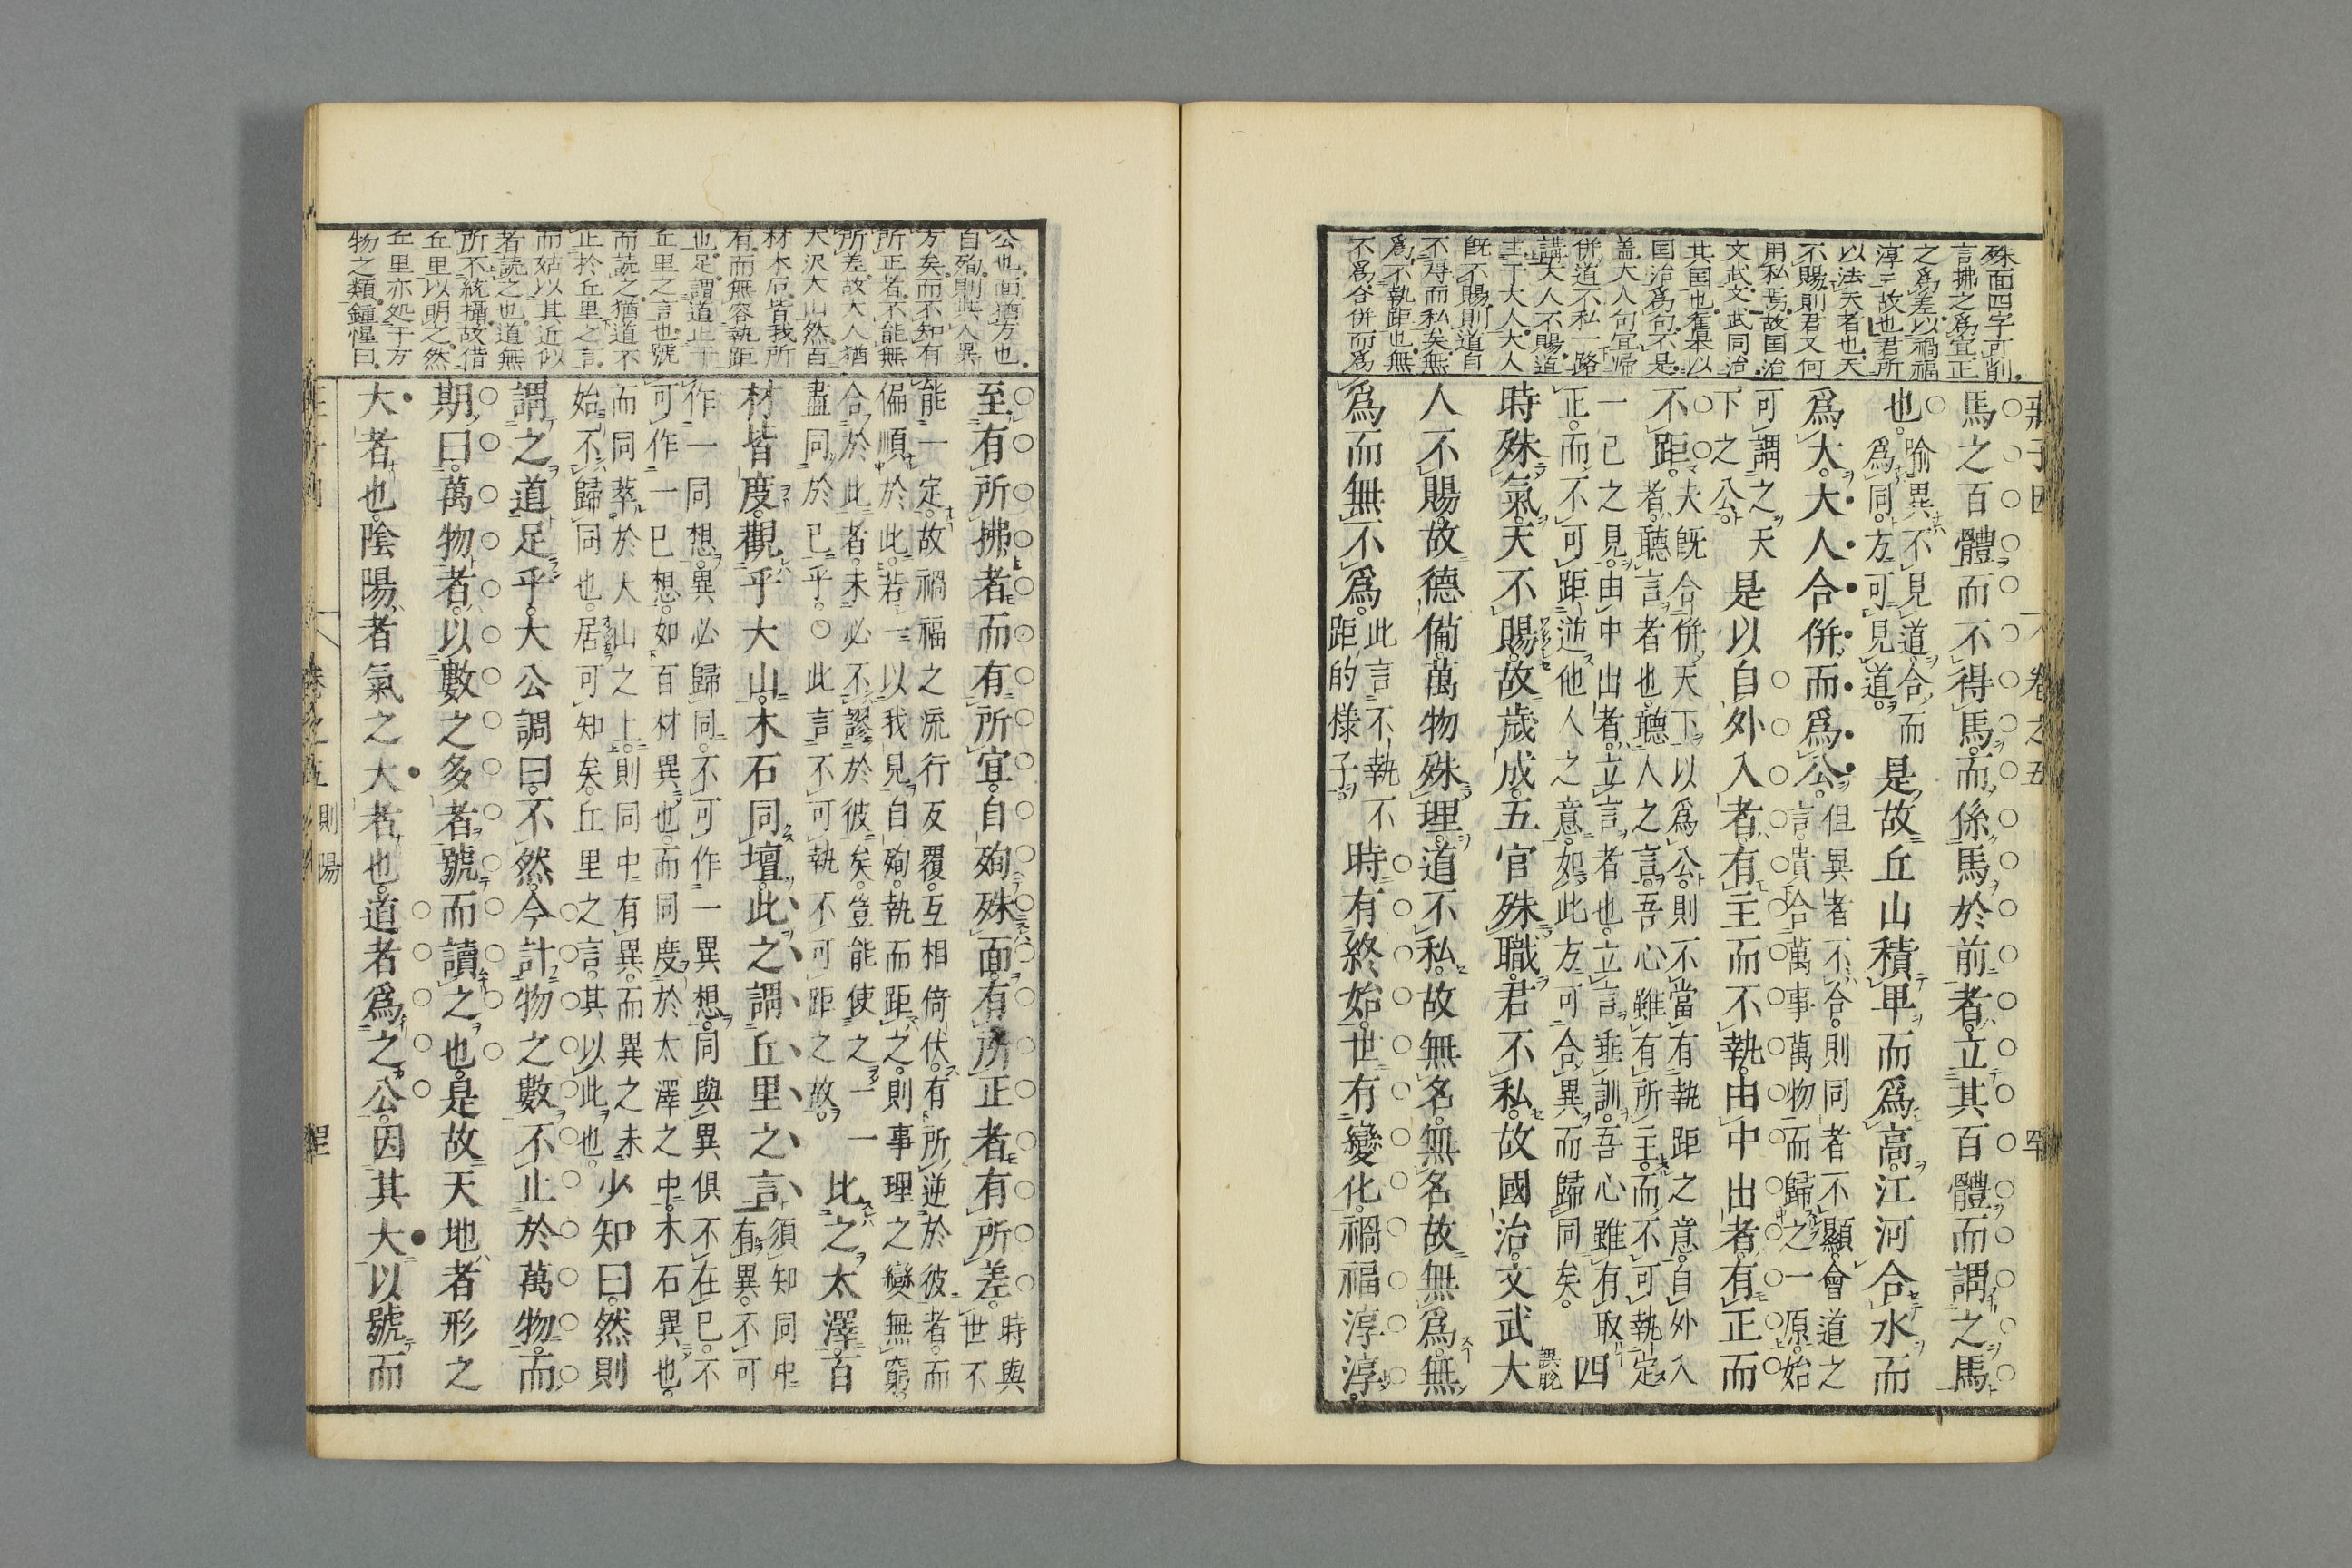 殊面四字可削
言拂之爲宜正
之爲差以禍福
淳淳故也君所
以法天者也天
不賜則君又何
用私焉故国治
文武文武同治
其国也舊㮣以
国治爲句不是
盖大人句宜帰
併道不私一路
講大人不賜道
主于大人大人
既不賜則道自
不得而私矣無
爲不執距也無
不爲合併而爲
莊子因
卷之五
馬之百體而不得馬而係馬於前者立其百體而謂之馬
也喻異不見道合而
爲同方可見道是故丘山積卑而爲高江河合水而
爲大大人合併而爲公但異者不合則同者不顯會道之
言貴合萬事萬物而歸之一原始
可謂之天
下之公是以自外入者有主而不執由中出者有正而
不距夫既合併天下以爲公則不當有執距之意自外入
者聽言者也聽人之言吾心雖有所主而不可執定
一已之見由中出者立言者也立言垂訓吾心雖有取
正而不可距逆他人之意如此方可合異而歸同矣四
時殊氣天不賜故歲成五官殊職君不私故國治文武大
人不賜故德備萬物殊理道不私故無名無名故無爲無
爲而無不爲此言不執不
距的様子時有終始世有變化禍福淳淳
公也面猶方也
自殉則與人異
方矣而不知有
所正者不能無
所差故大人猶
大沢大山然百
材木石皆我所
有而無容執距
也足謂道止于
丘里之言也號
而読之猶道不
止於丘里之言
而姑以其近似
者読之也道無
所不統攝故借
丘里以明之然
丘里亦処于方
物之類鍾惺曰
至有所拂者而有所宜自殉殊面有所正者有所差時與
世不
能一定故禍福之流行反覆互相倚伏有所逆於彼者而
偏順於此若一以我見自殉執而距之則事理之變無窮
合於此者未必不謬於彼矣豈能使之一一
盡同於已乎○此言不可執不可距之故此之太澤百
材皆度觀乎大山木石同壇此之謂丘里之言須知同中
有異不可
作一同想異必歸同不可作一異想同與異俱不在已不
可作一已想如百材異也而同度於太澤之中木石異也
而同萃於大山之上則同中有異而異之未
始不歸同也居可知矣丘里之言其以此也少知曰然則
謂之道足乎大公調曰不然今計物之數不止於萬物而
期曰萬物者以數之多者號而讀之也是故天地者形之
大者也陰陽者氣之大者也道者爲之公因其大以號而
卷之五 則陽